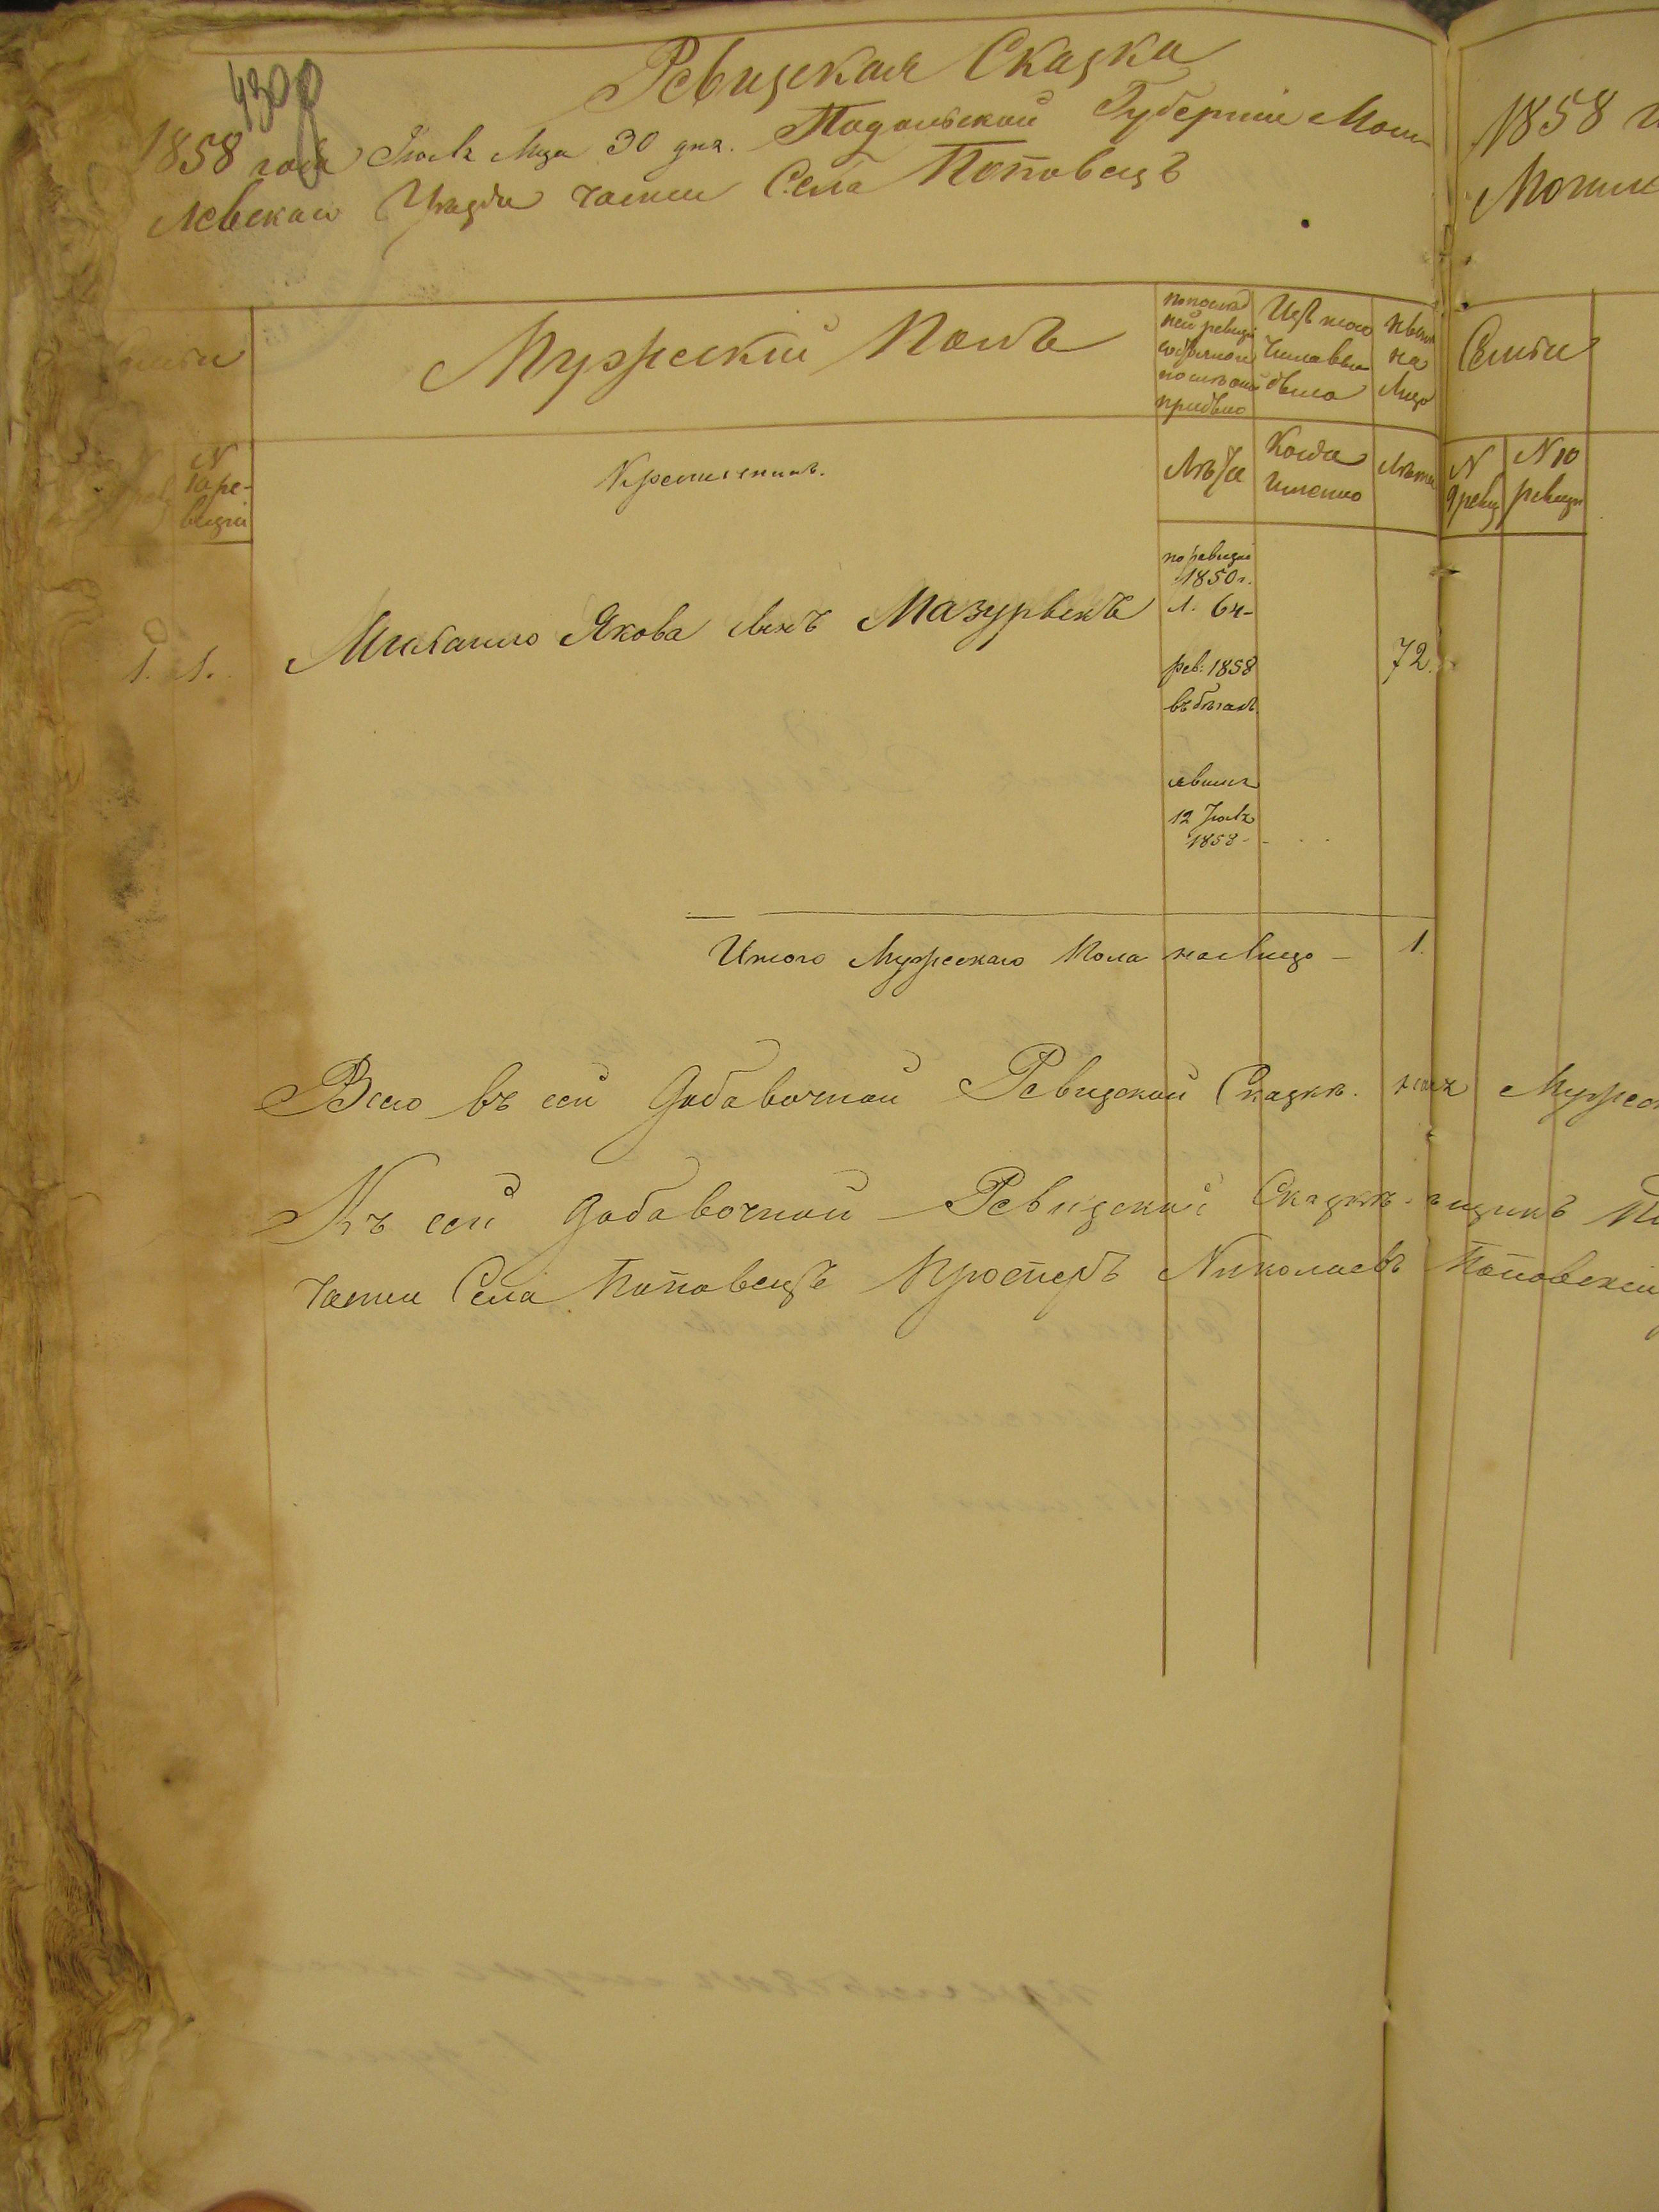 430
Ревизская Сказка
1858 года Июля Мца 30 дня. Подольской Губернiи Моги-
левскаго Уѣзда части Села Поповецъ
1858
Могиле
Мужескiй Полъ
по послѣд
ней ревизiи
состояло и
после оной
прибыло
Изъ того
числа вы
было
Нынѣ
на
Лицо
Семьи
N
10 ре-
визiи
Крестьянинъ.
Лѣта
Когда
Именно
Лѣта
N
9 ревиз
N 10
ревизiи
по ревизiи
1850 г.
л. 64
1. 1. Михайло Якова сынъ Мазурвекъ
рев: 1858
въ бѣгахъ
72.
явился
12 Iюля
1858
Итого Мужескаго Пола на лицо – 1.
Всего въ сей Добавочной Ревизской Сказкѣ. Мужеск
Къ сей Добавочной Ревизской Сказкѣ
части Села Поповецъ Просперъ Николаевъ Поповскiй